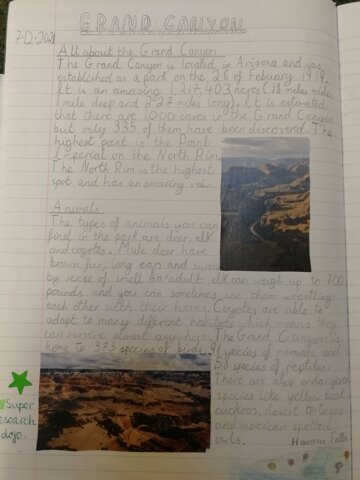 GRAND CANYON
7-12-2021
All about the Grand Canyon
The Grand Canyon is located in Arizona and was
established as a park on the 26 of February 1919.
It is an amazing 1,217,403 acres (18 miles wide,
1 mile deep and 277 miles long). It is estimated
that there are 1,000 caves in the Grand Canyon
but only 335 of them have been discovered. The
highest point is the Point
Imperial on the North Rim.
The North Rim is the highest
spot and has an amazing veiw.
Animals
The types of animals you can
find in the park are deer, elk
and coyotes. Mule deer have
brown fur, long ears and
by sense of smell. An adult elk can weigh up to 700
pounds and you can sometimes see them wrestling
each other with their horns. Coyotes are able to
adapt to many different habitats which means they
can survive almost anywhere. The Grand Canyon is
home to 373 species of birds, 91 species of mammals and
58 species of reptiles.
There are also endangered
species like yellow beak
cuckoos, desert tortoises
and mexican spotted
owls.
Super
research
dojo.
Havasu Falls